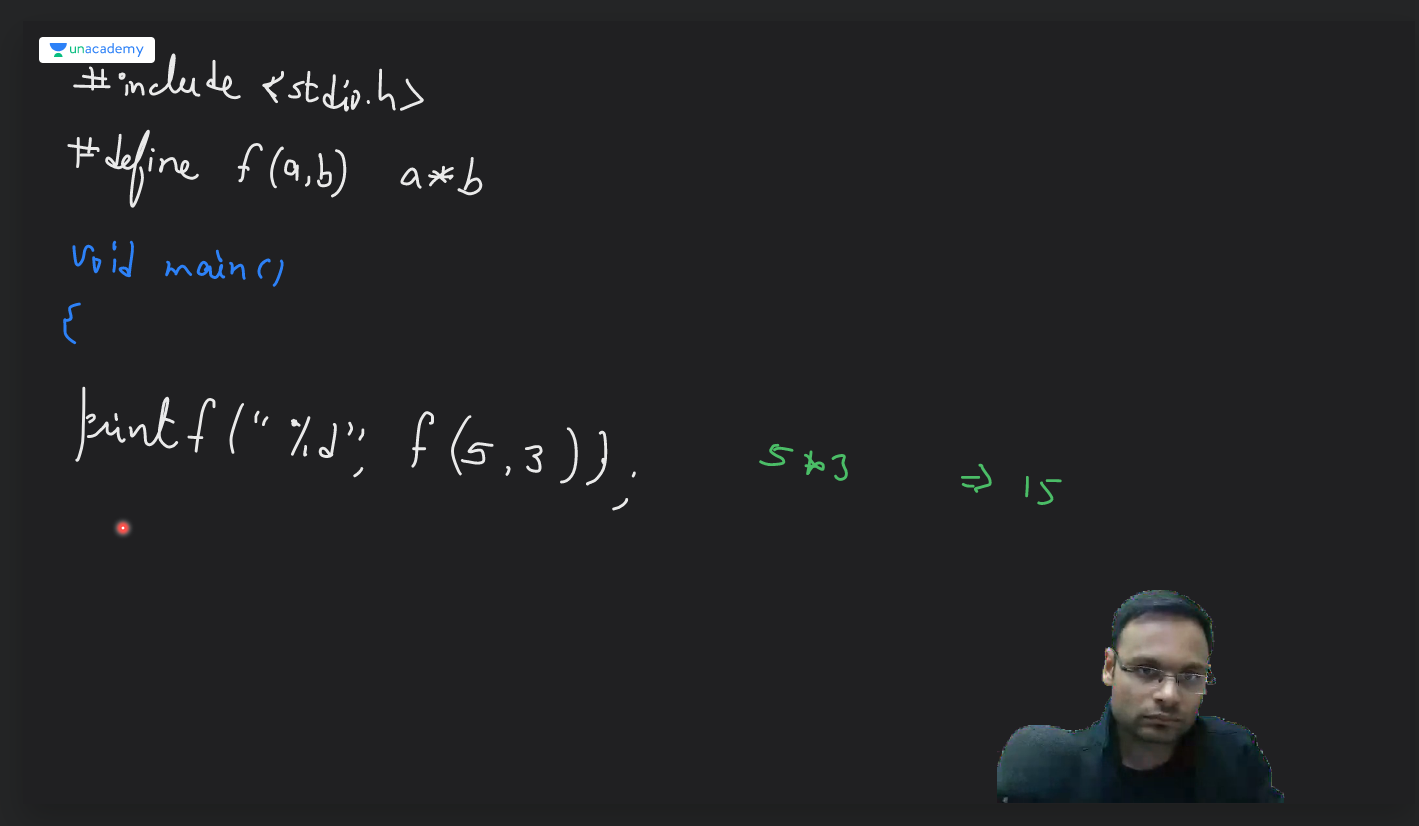 unacademy
#include <stdio.h>
#define f(a,b) a*b
void main()
{
printf("%d", f(5,3));
5*3 => 15